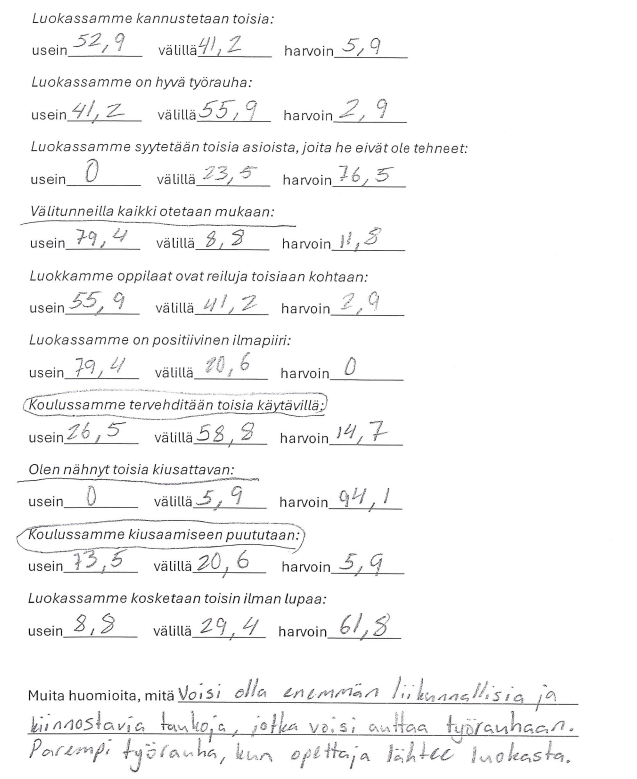 Luokassamme kannustetaan toisia:
usein 52,9 välillä 41,2 harvoin 5,9
Luokassamme on hyvä työrauha:
usein 41,2 välillä 55,9 harvoin 2,9
Luokassamme syytetään toisia asioista, joita he eivät ole tehneet:
usein 0 välillä 23,5 harvoin 76,5
Välitunneilla kaikki otetaan mukaan:
usein 79,4 välillä 8,8 harvoin 11,8
Luokkamme oppilaat ovat reiluja toisiaan kohtaan:
usein 55,9 välillä 41,2 harvoin 2,9
Luokassamme on positiivinen ilmapiiri:
usein 79,4 välillä 20,6 harvoin 0
Koulussamme tervehditään toisia käytävillä:
usein 26,5 välillä 58,8 harvoin 14,7
Olen nähnyt toisia kiusattavan:
usein 0 välillä 5,9 harvoin 94,1
Koulussamme kiusaamiseen puututaan:
usein 73,5 välillä 20,6 harvoin 5,9
Luokassamme kosketaan toisin ilman lupaa:
usein 8,8 välillä 29,4 harvoin 61,8
Muita huomioita, mitä Voisi olla enemmän liikunnallisia ja
kiinnostavia taukoja, jotka voisi auttaa työrauhaan.
Parempi työrauha, kun opettaja lähtee luokasta.